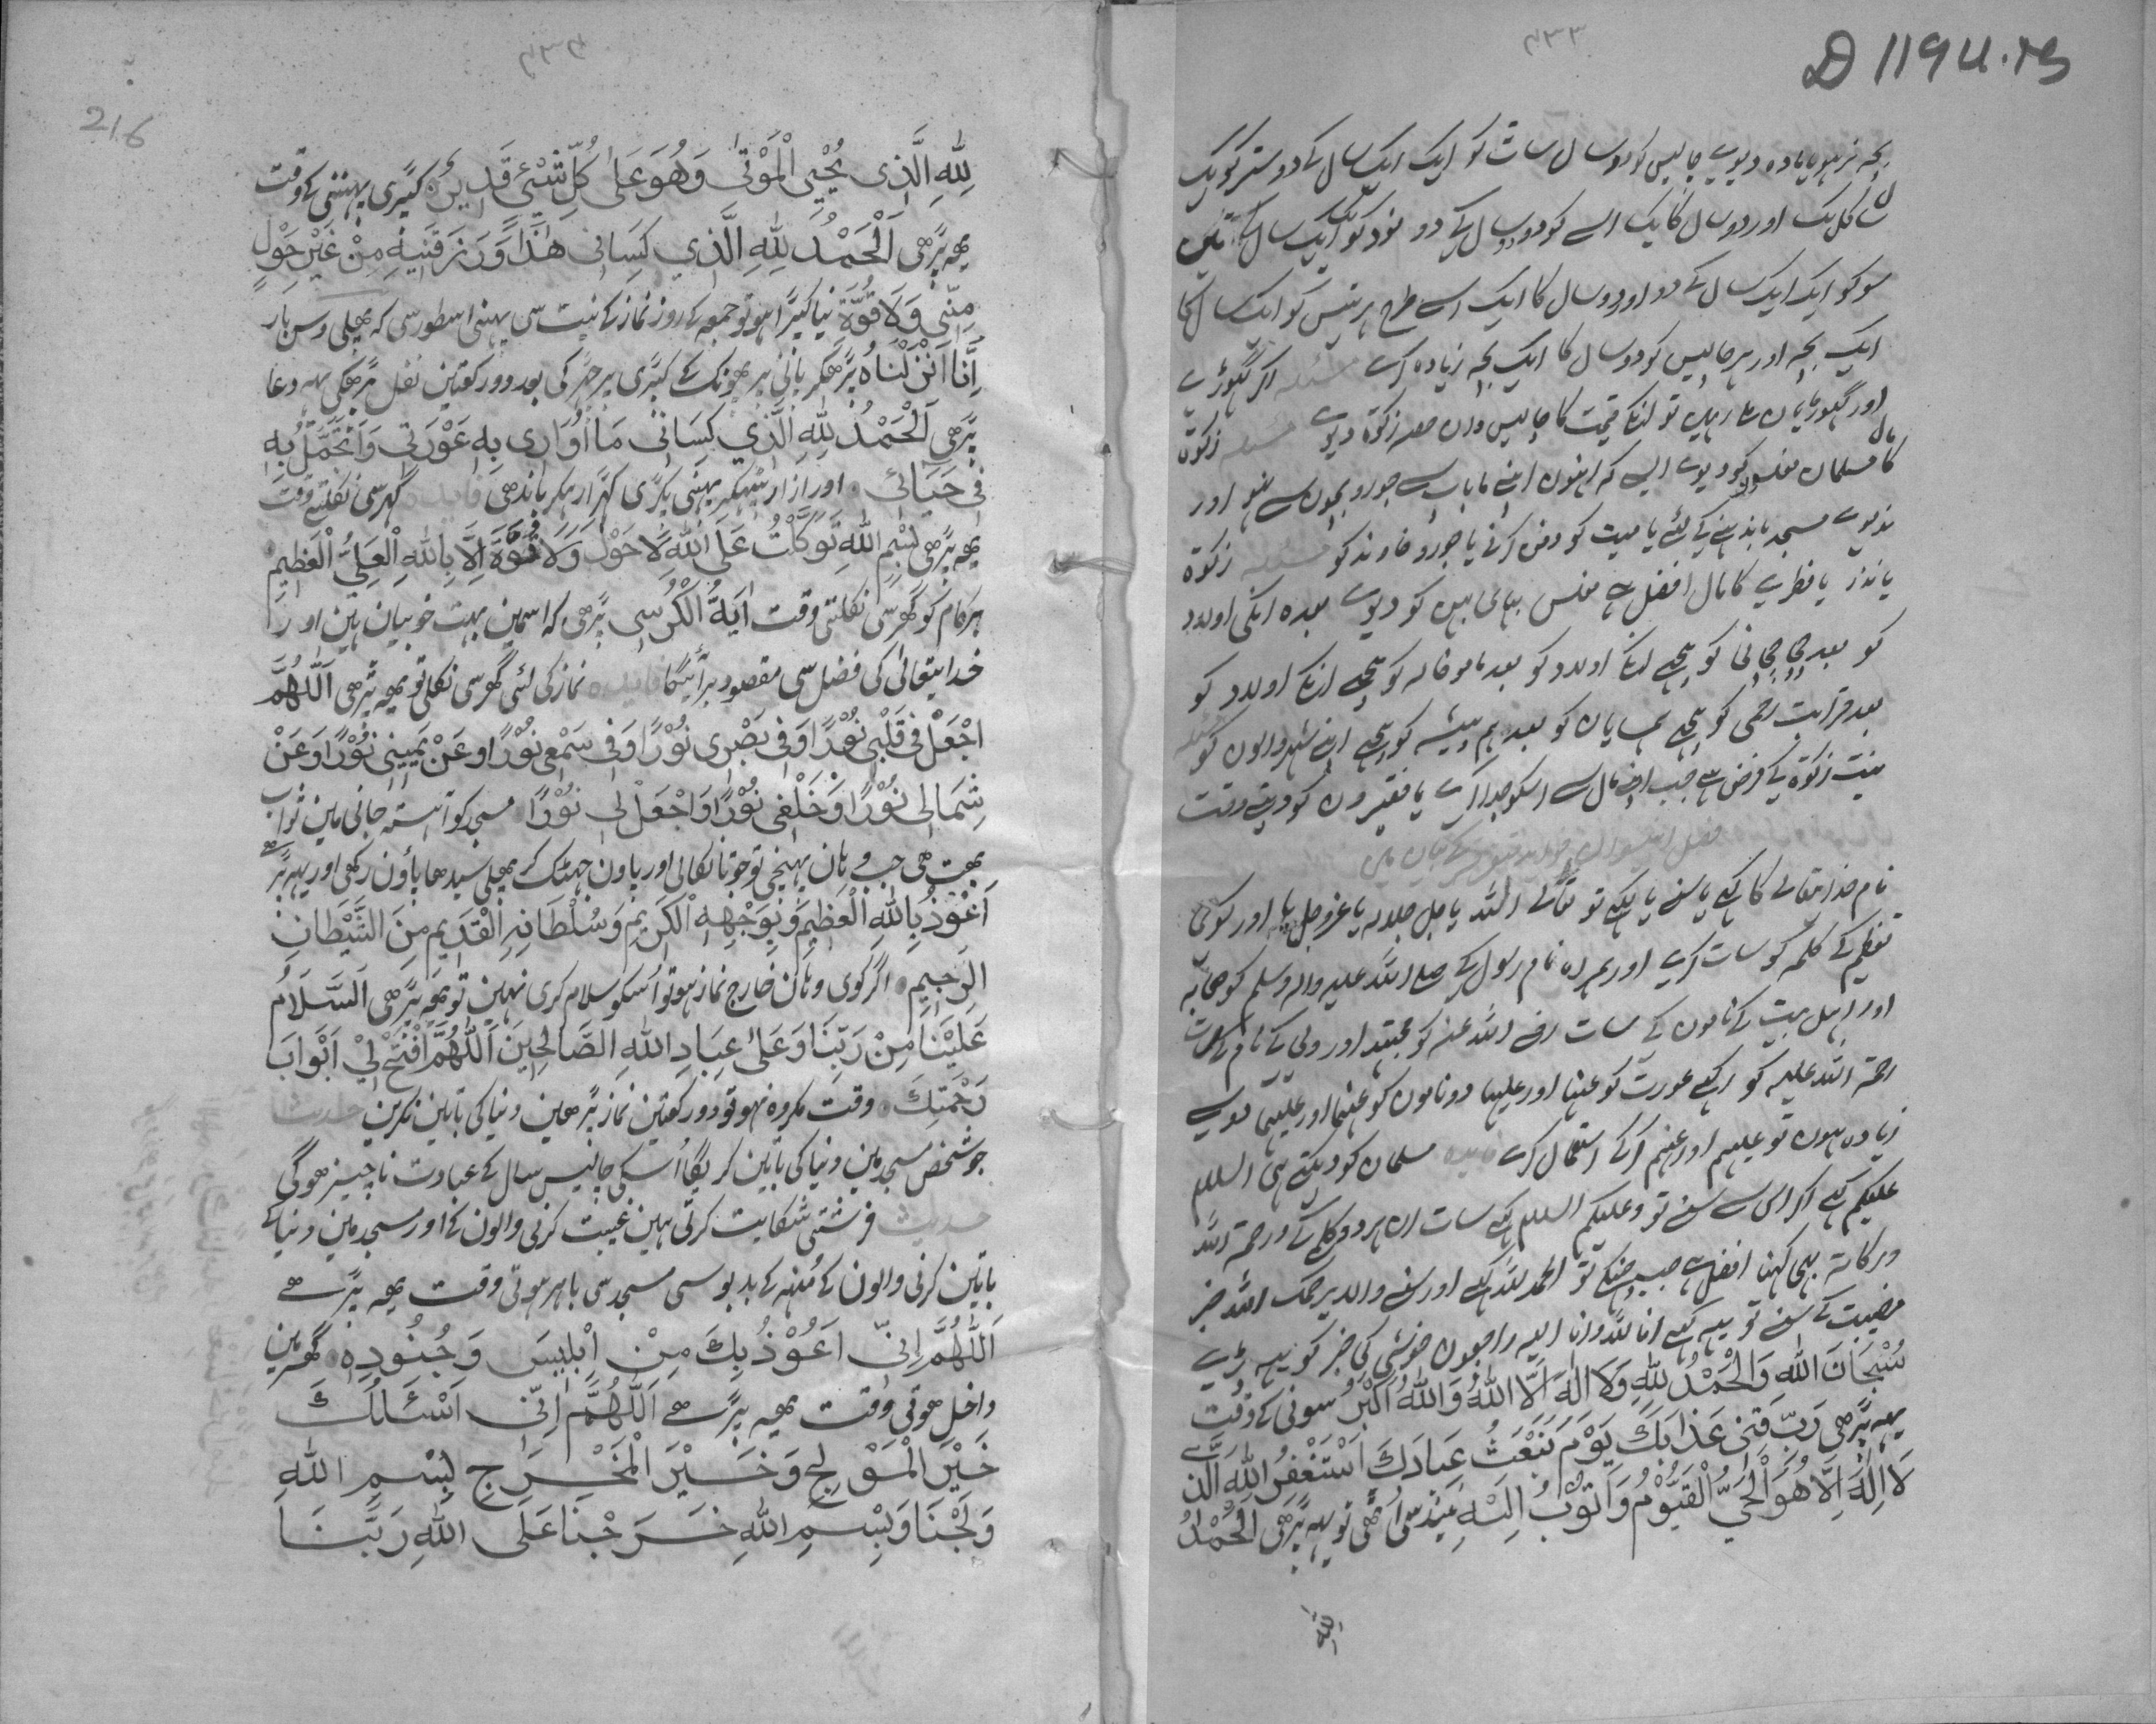 D 1194.B
۴۳۳
بچہ نر ہو یا مادہ دیوے چالیس کو دو سال سات کو ایک ایک سال کے دو ستر کو یک
سال کا یک اور دو سال کا یک اسے کو دو دو سال کے دو نود کو ایک ایک سال کے تین
سو کو ایک ایک سال کے دو اور دو سال کا ایک اسے طرح ہر تیس کو ایک سال کا
ایک بچہ اور ہر چالیس کو دو سال کا ایک بچہ زیادہ کرے مسئلہ اگر گھوڑے
اور گھوڑیاں ہیں تو انکے قیمت کا چالیسواں حصہ زکوة دیوے مسئلہ زکوة
کا مال مسلمان مفلسوں کو دیوے ایسے کہ انہوں اپنے ماباپ جورو بچوں سے نہو اور
ندیوے مسجد باندہنے کے لئے یا میت کو دفن کرنے یا جورو خاوند کو مسئلہ زکوة
یا نذر یا فطرے کا مال افضل ہے مفلس بھائی بہن کو دیوے بعدہ انکی اولاد
کو بعد چچی چچا کو پیچھے انکے اولاد کو بعد ماموں خالہ کو پیچھے انکے اولاد کو
بعد قرابت رحمی کو پیچھے ہمسایاں کو بعد ہم پیشہ کو پیچھے اپنے شہر والوں کو مسئلہ
نیت زکوة کے فرض ہے جب اپنے مال سے اسکو جدا کرے یا فقیروں کو دیتے وقت
نام خدایتعالے کا لکھے یا سنے یا کہے تو تعالے اللہ یا جل جلالہ یا عز و جل یا اور کوئی
تعظیم کے کلمہ کو سات کرے اور ہمراہ نام رسول کے صلے اللہ علیہ والہ وسلم کو صحابہ
اور اہل بیت کے ناموں کے سات رضے اللہ عنہ کو مجتہد اور ولی کے نام کے سات
رحمة اللہ علیہ کو اگر عورت کو عنہا اور علیہا دو ناموں کو عنہما اور علیہما دوسے
زیادہ ہوں تو علیہم اور عنہم کر کے استعمال کرے فایدہ مسلمان کو دیکھتے ہی السلام
علیکم کہے اگر اس سے سنے تو وعلیکم السلام کہے سات ان ہر دو کلمے کے ورحمة اللہ
وبرکاتہ بھی کہنا افضل ہے جب چھینکے تو الحمد للہ کہے اور سنے والا یرحمک اللہ خبر
مصیبت کے سنے تو یہہ کہے انا للہ وانا الیہ راجعون خوشی کی خبر کو یہہ پڑہے
سُبْحَانَ اللهِ وَالْحَمْدُ لِلّٰهِ وَلَا اِلٰهَ اِلَّا اللهُ وَاللهُ اَكْبَرُ سونی کے وقت
یہہ پڑھی رَبِّ قِنِی عَذَابَكَ يَوْمَ تَبْعَثُ عِبَادَكَ اَسْتَغْفِرُ اللهَ الَّذِی
لَا اِلٰهَ اِلَّا هُوَ الْحَیُّ الْقَيُّوْمُ وَاَتُوْبُ اِلَيْهِ نیند سی اٹھی تو یہہ پڑھی اَلْحَمْدُ
للہ
۴۳۴
216
لِلّٰهِ الَّذِی يُحْيِی الْمَوْتٰی وَهُوَ عَلٰی كُلِّ شَیْءٍ قَدِيْرٌ کپڑی پہننی کے وقت
یھہ پڑھی اَلْحَمْدُ لِلّٰهِ الَّذِی كَسَانِی هٰذَا وَرَزَقَنِيْهِ مِنْ غَيْرِ حَوْلٍ
مِنِّی وَلَا قُوَّةٍ نیا کپڑا ہو تو جمعہ کے روز نماز کے نیت سی پہنی اسطور سی کہ پھلی دس بار
اِنَّا اَنْزَلْنَاهُ پڑھکر پانی پر پھونک کے کپڑی پر چھڑکی بعد دو رکعتین نفل پڑھکی یہہ دعا
پڑھی اَلْحَمْدُ لِلّٰهِ الَّذِی كَسَانِی مَا اُوَارِی بِهِ عَوْرَتِی وَاَتَجَمَّلُ بِهِ
فِی حَيَاتِی اور ازار بیٹھکر پہنی پگڑی کھڑا رہکر باندھی فایدہ گھر سی نکلتے وقت
یھہ پڑھی بِسْمِ اللهِ تَوَكَّلْتُ عَلَی اللهِ لَا حَوْلَ وَلَا قُوَّةَ اِلَّا بِاللهِ الْعَلِیِّ الْعَظِيْمِ
ہر کام کو گھر سی نکلتی وقت اٰيَةُ الْكُرْسِی پڑھی کہ اسمین بہت خوبیان ہین اور
خدایتعالیٰ کی فضل سی مقصود بر آئیگا فایدہ نماز کی لئی گھر سی نکلی تو یھہ پڑھی اَللّٰهُمَّ
اجْعَلْ فِی قَلْبِی نُوْرًا وَفِی بَصَرِی نُوْرًا وَفِی سَمْعِی نُوْرًا وَعَنْ يَمِيْنِی نُوْرًا وَعَنْ
شِمَالِی نُوْرًا وَخَلْفِی نُوْرًا وَاجْعَلْ لِی نُوْرًا مسجد کو آہستہ جانی مین ثواب
بہت ھی جب وہان پہنچی تو جوتا نکالی اور پاون جہٹک کر پھلی سیدھا پاؤن رکھی اور یہہ پڑھی
اَعُوْذُ بِاللهِ الْعَظِيْمِ وَبِوَجْهِهِ الْكَرِيْمِ وَسُلْطَانِهِ الْقَدِيْمِ مِنَ الشَّيْطَانِ
الرَّجِيْمِ اگر کوی وہان خارج نماز ہو تو اُسکو سلام کری نہین تو یھہ پڑھی اَلسَّلَامُ
عَلَيْنَا مِنْ رَبِّنَا وَعَلٰی عِبَادِ اللهِ الصَّالِحِيْنَ اَللّٰهُمَّ افْتَحْ لِیْ اَبْوَابَ
رَحْمَتِكَ وقت مکروہ نہو تو دو رکعتین نماز پڑھین دنیا کی باتین نکرین حدیث
جو شخص مسجد مین دنیا کی باتین کریگا اُسکی چالیس سال کے عبادت ناچیز ھوگی
حدیث فرشتی شکایت کرتی ہین غیبت کرنی والون کے اور مسجد مین دنیا کے
باتین کرنی والون کے مُنہہ کے بدبو سی مسجد سی باہر ہوتی وقت یھہ پڑھے
اَللّٰهُمَّ اِنِّی اَعُوْذُ بِكَ مِنْ اِبْلِيْسَ وَجُنُوْدِهِ گھر مین
داخل ھوتی وقت یھہ پڑھے اَللّٰهُمَّ اِنِّی اَسْئَلُكَ
خَيْرَ الْمَوْلِجِ وَخَيْرَ الْمَخْرَجِ بِسْمِ اللهِ
وَلَجْنَا وَبِسْمِ اللهِ خَرَجْنَا عَلَی اللهِ رَبِّنَا